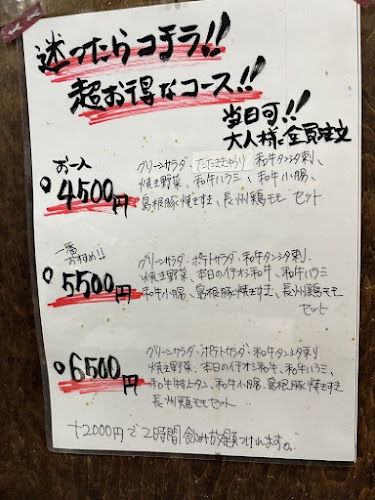 迷ったらコチラ!!
超お得なコース!!
当日可!!
大人様は全員注文
お一人
4500円
グリーンサラダ、たたききゅうり、和牛タンシタ刺、
焼き野菜、和牛ハラミ、和牛小腸、
島根豚焼きすき、長州鶏モモ セット
一番
お勧め!!
5500円
グリーンサラダ、ポテトサラダ、和牛タンシタ刺、
焼き野菜、本日のイチオシ和牛、和牛ハラミ
和牛小腸、島根豚焼きすき、長州鶏モモ
セット
6500円
グリーンサラダ、ポテトサラダ、和牛タンシタ刺
焼き野菜、本日のイチオシ和牛、和牛ハラミ、
和牛特上タン、和牛小腸、島根豚焼きすき
長州鶏モモセット
+2000円で2時間飲み放題つけれます。